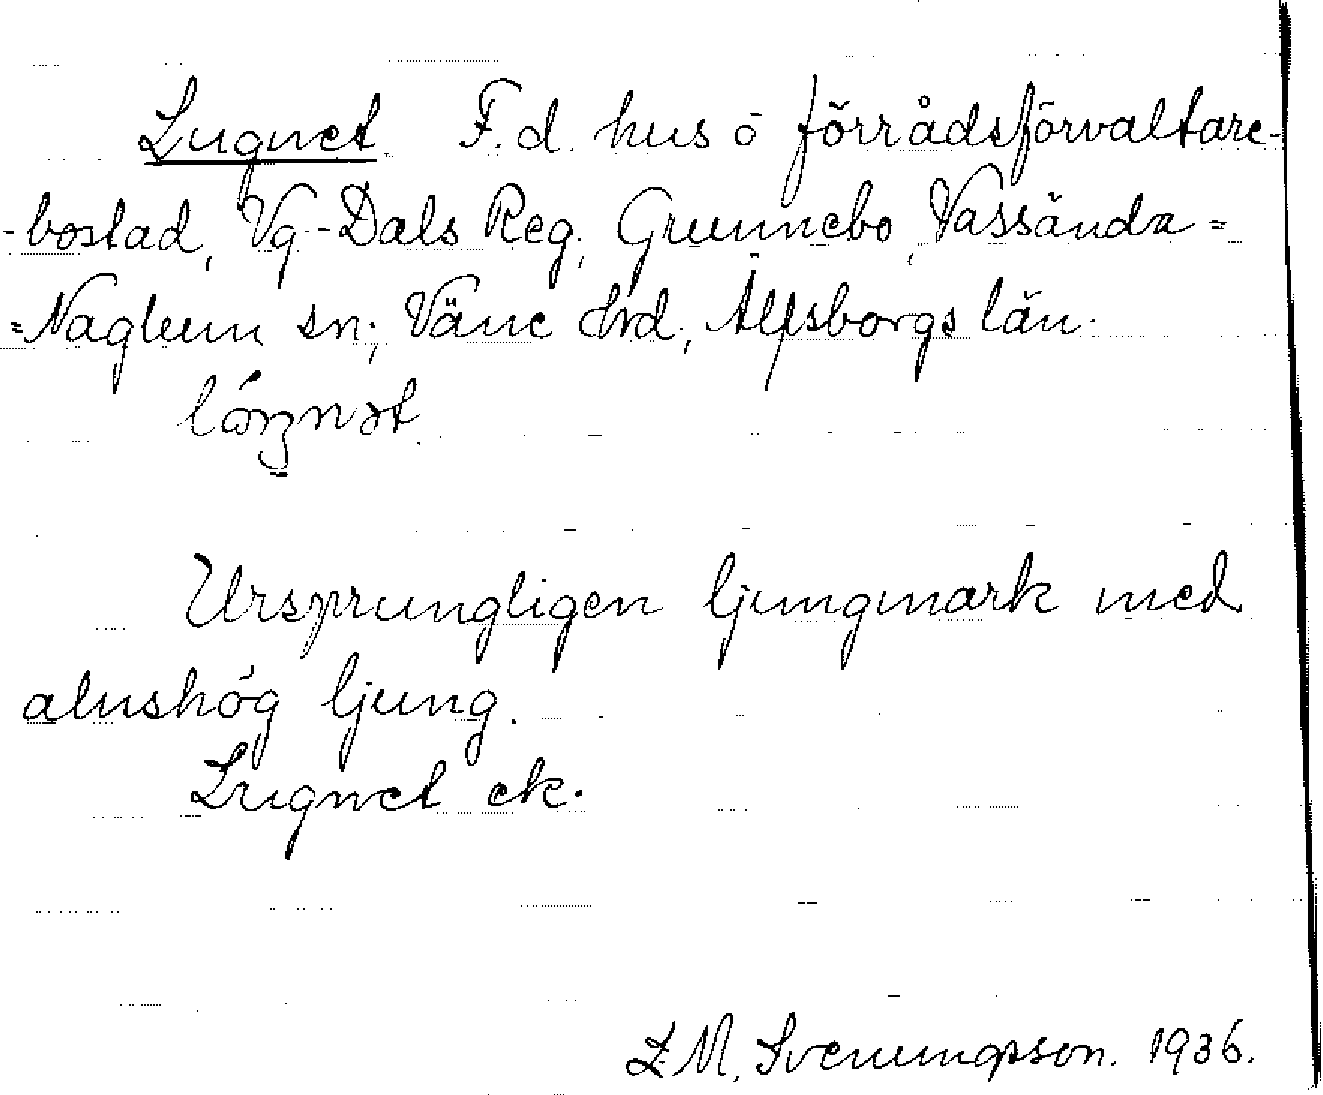 Lugnet. F.d. hus ö förrådsförvaltare-
-bostad, Vg-Dals Reg, Grunnebo, Vassända=
=Naglum sn; Väne Hrd, Älfsborgs län.
Ursprungligen ljungmark med
alnshög ljung.
Lugnet ek.
Z. M. Svenungsson. 1936.